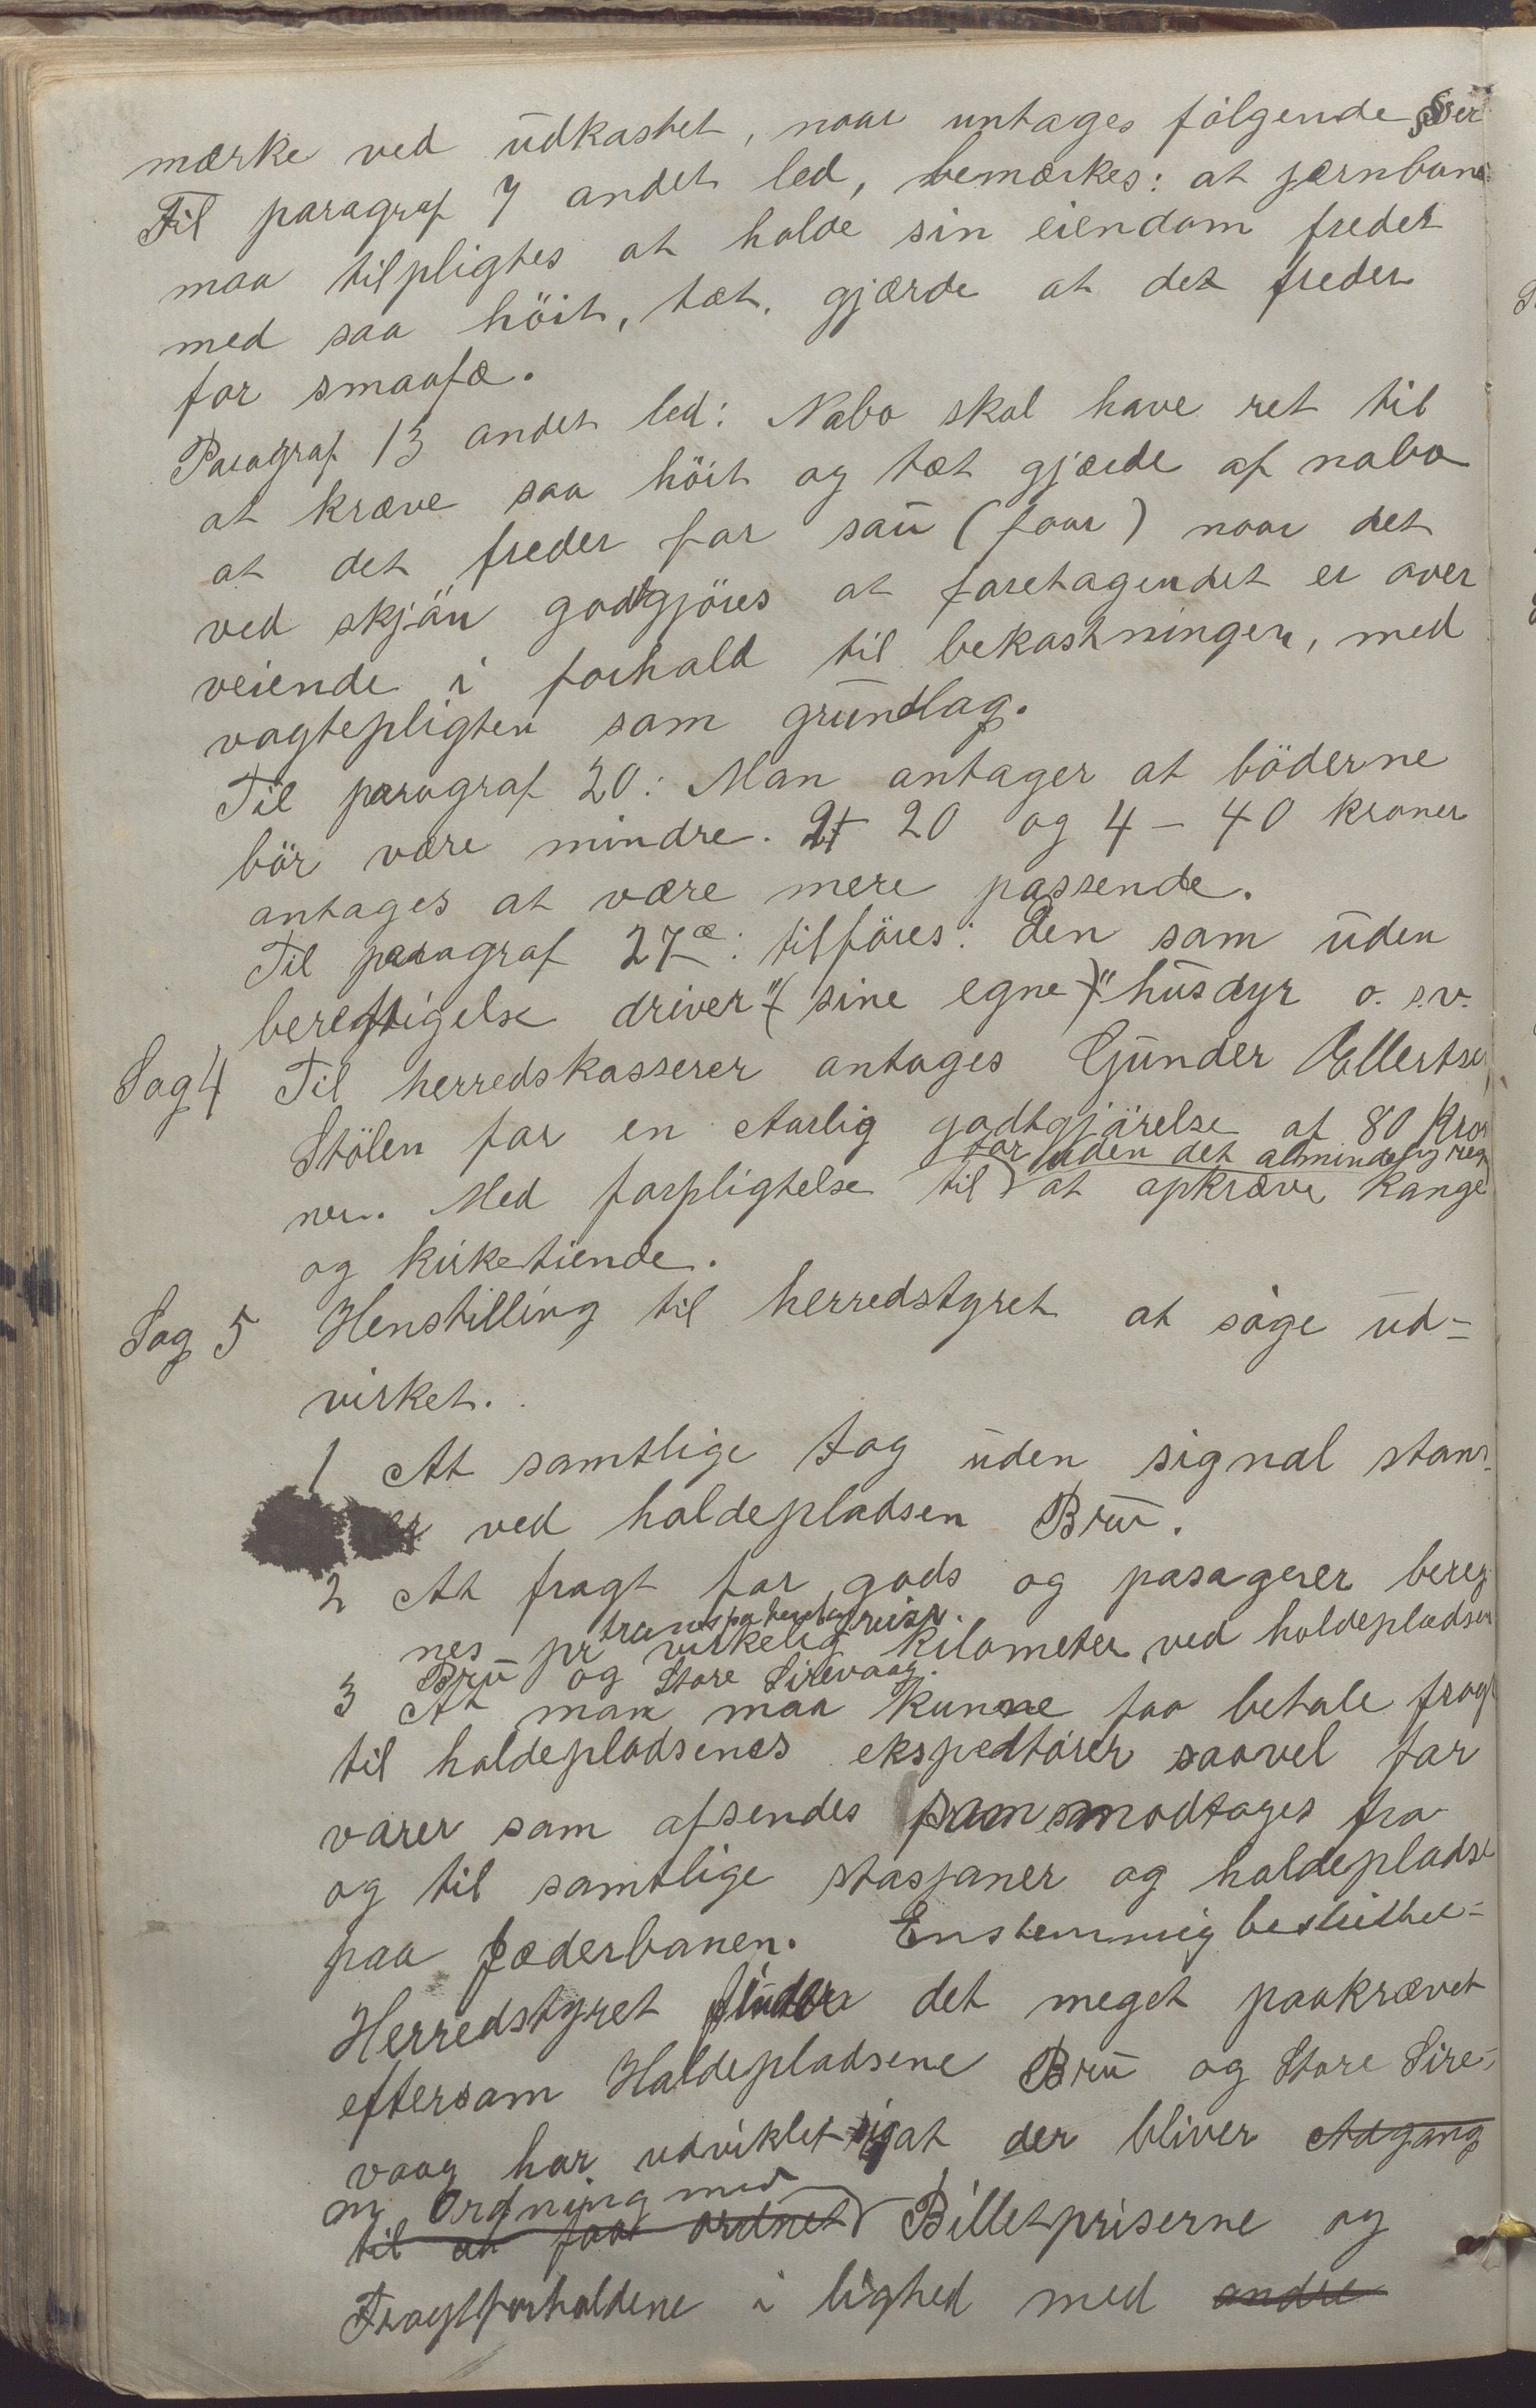 mærke ved udkastet, naar untages følgende §§er
Til paragraf 7 andet led, bemærkes: at jernbane
maa tilpligtes at holde sin eiendom fredet
med saa höit, tæt, gjærde at det freder
for smaafæ.
Paragraf 13 andet led: Nabo skal have ret til
at kræve saa höit og tæt gjærde af nabo
at det freder for sau (faar) naar det
ved skjön godtgjöres at foretagendet er over
veiende i forhold til bekostningen, med
vogtepligten som grundlag.
Til paragraf 20: Man antager at böderne
bör være mindre. 2+ 20 og 4 - 40 kroner
antages at være mere passende.
Til paragraf 27æ: tilföres: den som uden
berettigelse driver "(sine egne)" husdyr o. s.v.
Sag 4 Til herredskasserer antages Gunder Ellertsen
Stölen for en aarlig godtgjörelse af 80 kro
for uden det almindelig reg
ner. Med forpligtelse til at opkræve Konge
og kirketiende.
Sag 5 Henstilling til herredstyret at söge ud-
virket.
1 At samtlige tog uden signal stans-
er ved holdepladsen Bru.
2 At fragt for gods og pasagerer bereg
nes pr virkelig kilometer ved holdepladsen
Bru og Store Sirevaag.
3 At man maa kunne faa betale fragt
til holdepladsenes ekspeditörer saavel for
varer som afsendes som modtages fra
og til samtlige stasjoner og holdepladse
paa Jæderbanen. Enstemmig besluttet-
Herredstyret finder det meget paakrævet
eftersom Holdepladsene Bru og Store Sire-
vaag har udviklet sig at der bliver Adgang
ny Ordning med
til at faa ordnet Billetpriserne og
Fragtforholdene i lighed med andre